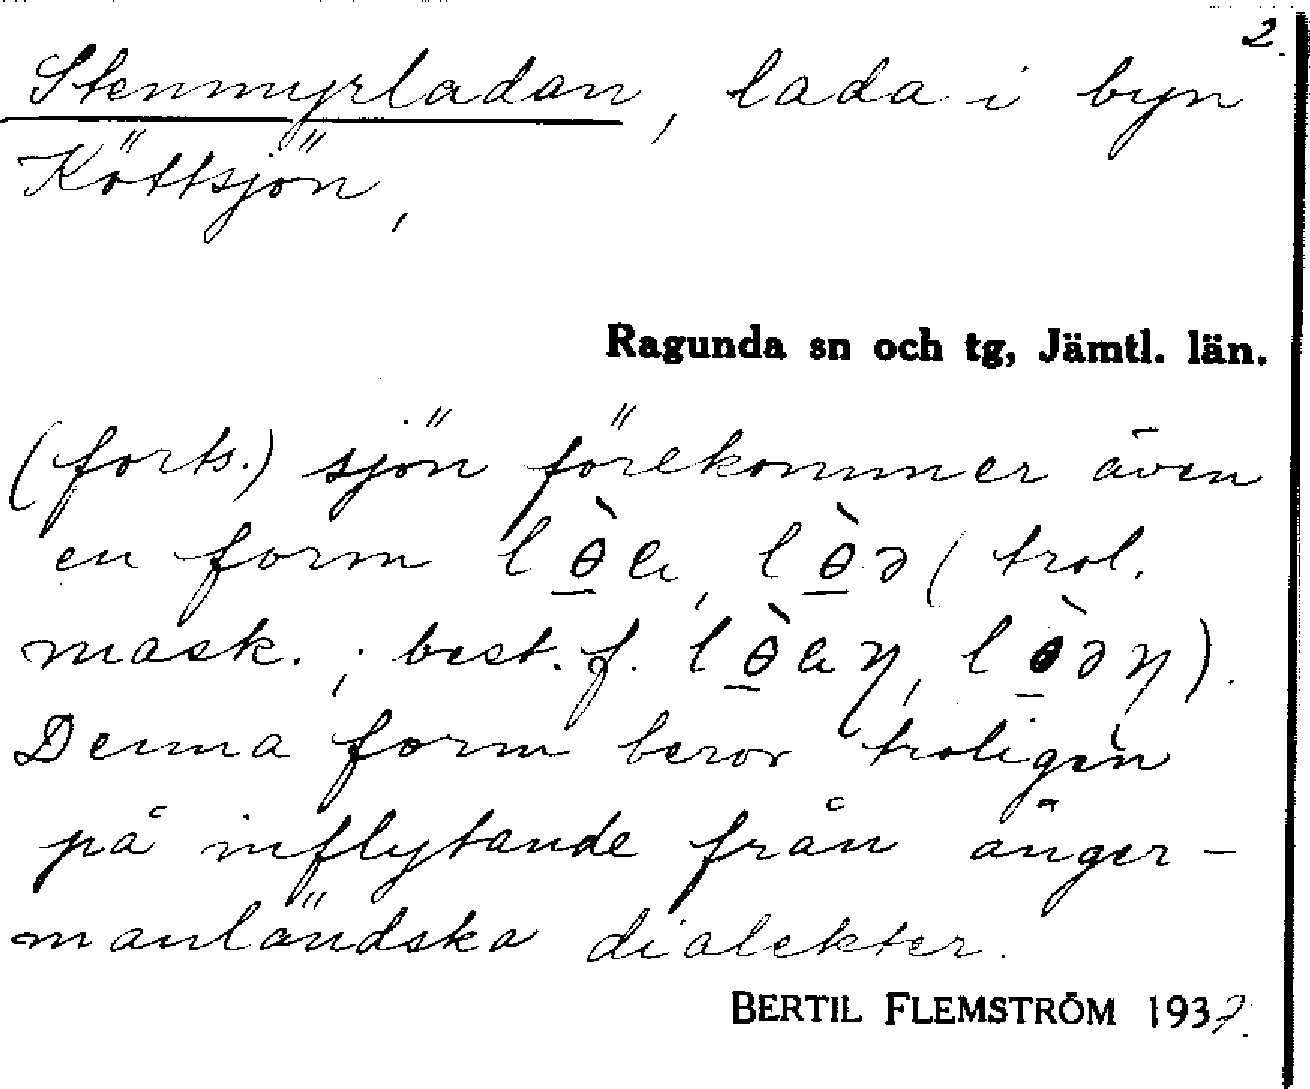 2.
Stenmyrladan, lada i byn
Köttsjön,
Ragunda sn och tg, Jämtl. län.
(forts.) sjön förekommer även
en form lɵ̠̀a, lɵ̠̀ə (trol.
mask.; best. f. lɵ̠̀aŋ, lɵ̠̀əŋ).
Denna form beror troligen
på inflytande från ånger-
manländska dialekter.
BERTIL FLEMSTRÖM 1937.